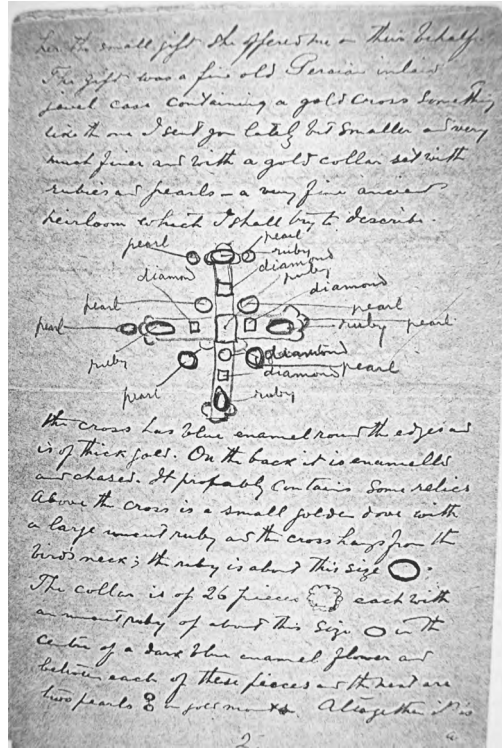 her the small gift she offered me on their behalf.
The gift was a fine old Persian inlaid
jewel case containing a gold cross something
like the one I sent you lately but smaller and very
much finer and with a gold collar set with
rubies and pearls – a very fine ancient
heirloom which I shall try to describe.
pearl
pearl
ruby
diamond
diamond
ruby
diamond
pearl
pearl
pearl
ruby
pearl
ruby
diamond
diamond
pearl
pearl
ruby
the cross has blue enamel round the edges and
is of thick gold. On the back it is enamelled
and chased. It probably contains some relics
Above the cross is a small golden dove with
a large uncut ruby and the cross hangs from the
bird's neck; the ruby is about this size
The collar is of 26 pieces each with
an uncut ruby of about this size in the
centre of a dark blue enamel flower and
between each of these pieces and the next are
two pearls in gold Altogether it is
2